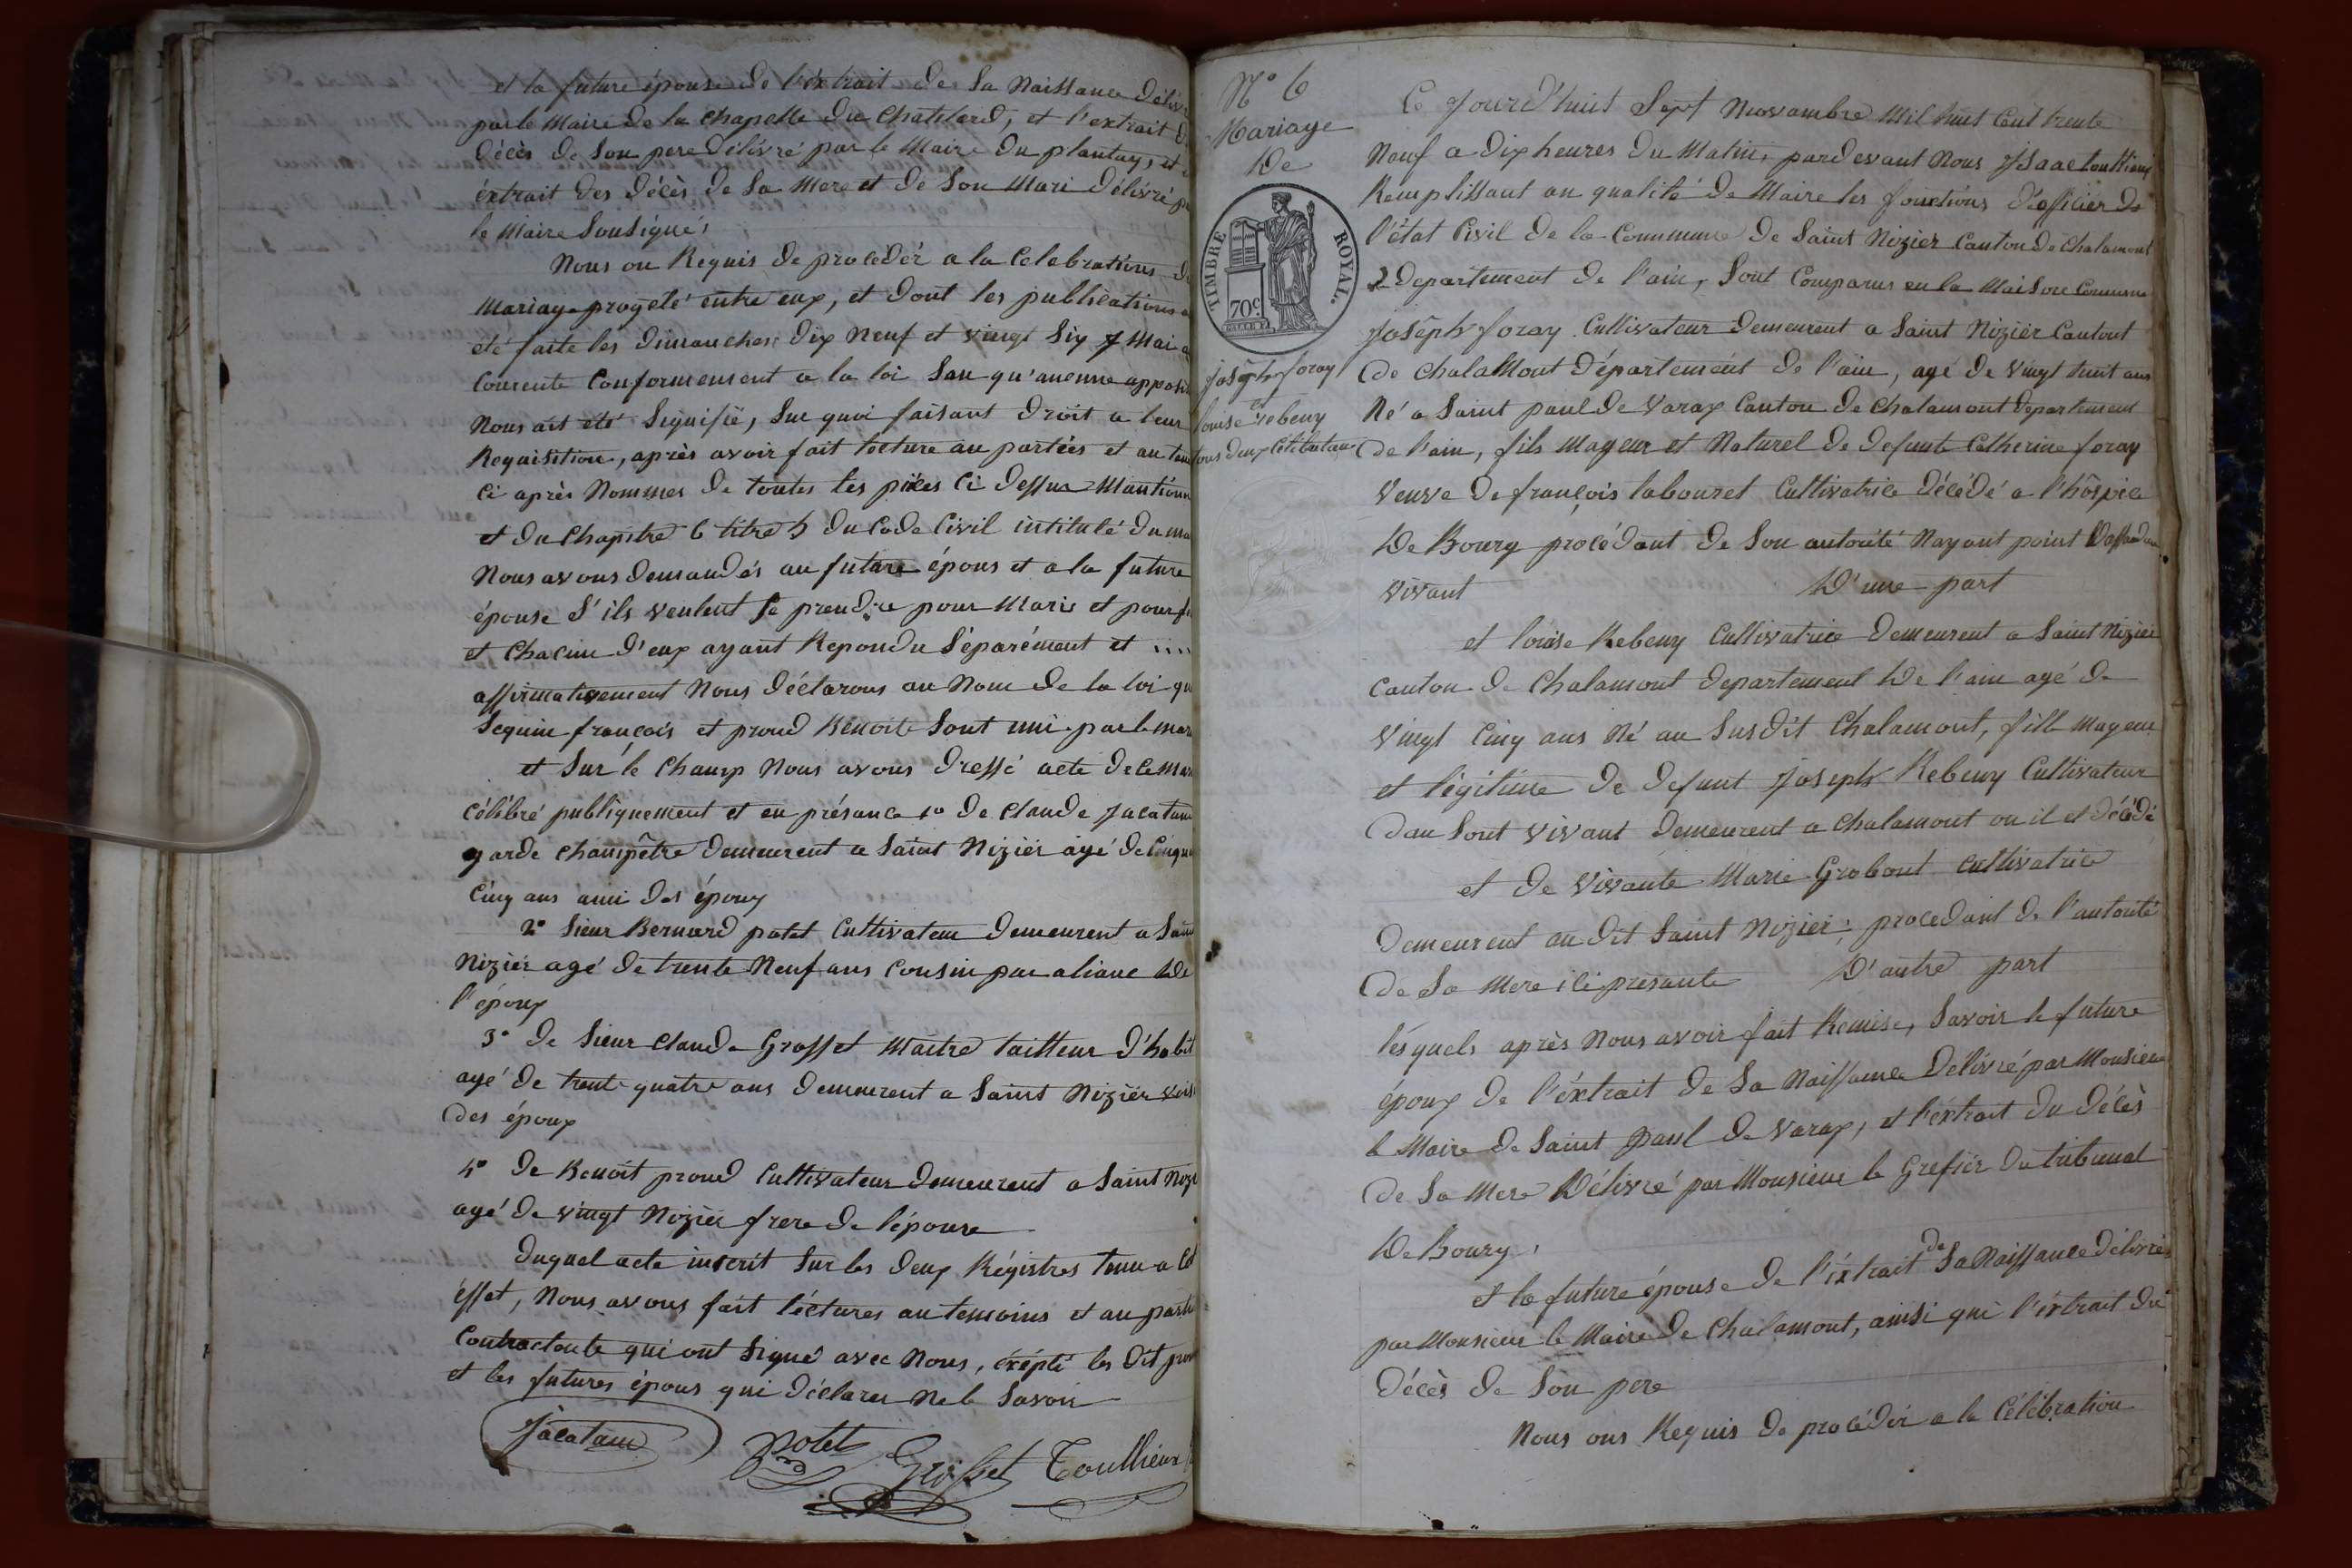 et la future épouse de l'éxtrait de Sa Naissance déliv
par le Maire de la Chapelle du Chatelard, et l'extrait d
décès de Son pere délivré par le Maire du plantay, et
éxtrait des décès de Sa Mere et de Son Mari délivré p
le Maire Sousigné,
Nous on Requis de procedér a la Celebrations d
Mariage progeté entre eux, et dont les publications
été faite les dimanches dix Neuf et vingt Six Mai
Courente Conformement a la loi San qu'aucune opposi
Nous ait été Signifié, Sur quoi faisant droit a leur
Requisition, après avoir fait lecture au parties et au tem
Ci après Nommes de toutes les piéces Ci dessus Mantionn
et du Chapitre 6 titre 5 du Code Civil intitulé du ma
Nous avons demandés au future épous et a la future
épouse S'ils veulent Se prendre pour Marie et pour f
et Chacune d'eux ayant Repondu Séparément et ....
affirmativement Nous déclarons au Nom de la loi qu
Seguin françois et proud Benoite Sont uni par le mar
et Sur le Champ Nous avons dressé acte de ce Mar
Célébré publiquement et en présance 1º de Claude Jacatam
garde Champêtre demeurent a Saint Nizier agé de Cinqu
Cinq ans ami des époux
2º Sieur Bernard potet Cultivateur demeurent a Sain
Nizier agé de trente Neuf ans Cousin par aliance de
l'époux
3º de Sieur Claude Grosset Maître tailleur d'habit
agé de trente quatre ans demeurent a Saint Nizier vois
des époux
4º de Benoît proud Cultivateur demeurent a Saint Nizi
agé de vingt Nizier frere de l'épouse
duquel acte inscrit Sur les deux Régistres tenu a Cet
éffet, Nous avons fait léctures au temoins et au parti
Contractante qui ont Signé avec Nous, éxépté les dit prou
et les futures épous qui déclarer Ne le Savoir
Jacatam
potet
Grosset
Toullieux
Nº 6
Mariage
De
TIMBRE ROYAL.
70c.
Joséph foray
et
louise Rebeny
tous deux Célibataire
Ce Jourd'huit Sept Novambre Mil huit Cent trente
Neuf a dix heures du Matin, pardevant Nous Isaac toullieux
Remplissant an qualité de Maire les fonctions d'officier de
l'état Civil de la Commune de Saint Nizier Canton de Chalamont
Departement de l'ain, Sont Comparus en la Maison Commune
Joséph foray Cultivateur demeurent a Saint Nizier Cantont
de ChalaMont Département de l'ain, agé de Vingt huit ans
Né a Saint paul de Varax Canton de Chalamont departement
de l'ain, fils Mageur et Naturel de defunte Catherine foray
Veuve de françois labouret Cultivatrice décédé a l'hôspice
De Bourg procédant de Son autorité Nayant point
Vivant D'une part
et louise Rebeny Cultivatrice demeurent a Saint Nizier
Canton de Chalamont departement De l'ain agé de
Vingt Cinq ans Né au Susdit Chalamont, fille Mageur
et légitime de defunt Joseph Rebeny Cultivateur
dan Sont vivant demeurent a Chalamont ou il et décédé
et de Vivante Marie Grobout Cultivatrice
demeurent au dit Saint Nizier; procedant de l'autorité
de Sa Mere ici présante D'autre part
lésquels après Nous avoir fait Remise, Savoir le future
époux de l'éxtrait de Sa Naissance délivré par Monsieur
le Maire de Saint paul de Varax, et l'éxtrait du décès
de Sa Mere Délivré par Monsieur le Grefiér du tribunal
De Bourg,
et la future épouse de l'éxtrait de Sa Naissance délivrés
par Monsieur le Maire de Chalamont, ainsi que l'éxtrait du
décès de Son pere
Nous ons Requis de procédér a la Célébration